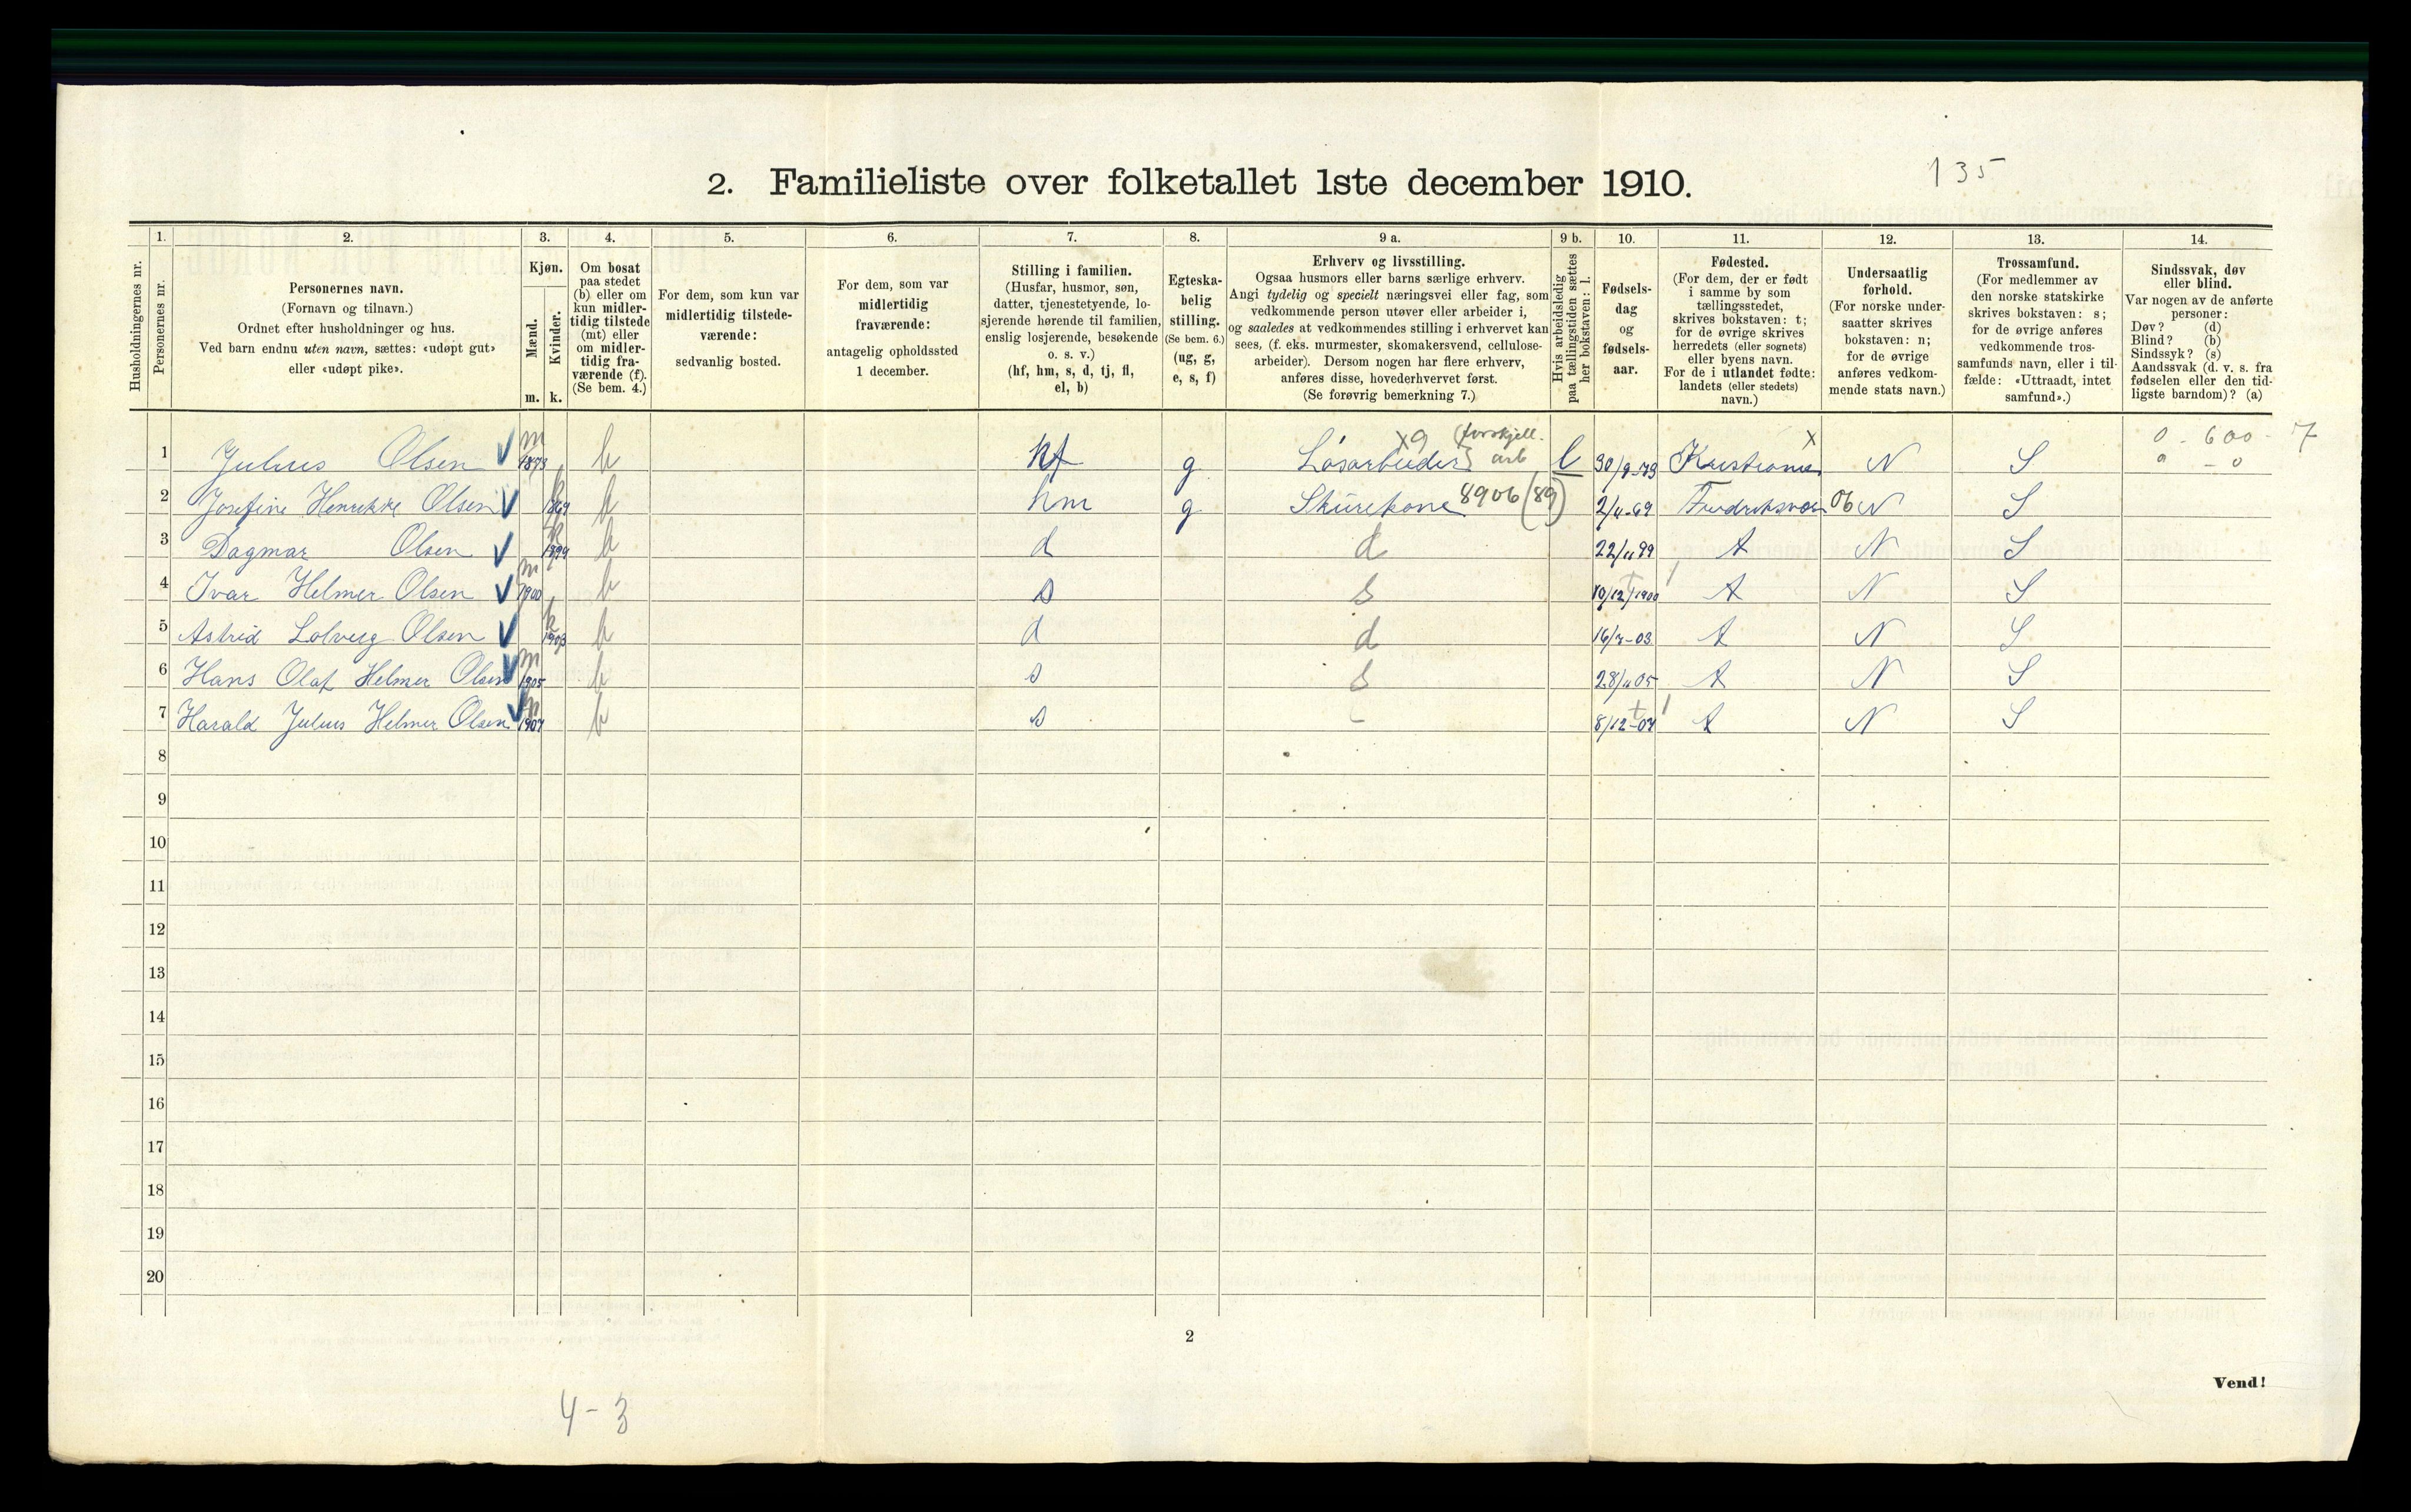 135
2. Familieliste over folketallet 1ste december 1910.
1. 2. 3. 4. 5. 6. 7. 8. 9 a. 9 b. 10. 11. 12. 13. 14.
Husholdningernes nr.
Personernes nr.
Personernes navn.
(Fornavn og tilnavn.)
Ordnet efter husholdninger og hus.
Ved barn endnu uten navn, sættes: «udøpt gut»
eller «udøpt pike».
Kjøn.
Mænd.
Kvinder.
m. k.
Om bosat
paa stedet
(b) eller om
kun midler-
tidig tilstede
(mt) eller
om midler-
tidig fra-
værende (f).
(Se bem. 4.)
For dem, som kun var
midlertidig tilstede-
værende:
sedvanlig bosted.
For dem, som var
midlertidig
fraværende:
antagelig opholdssted
1 december.
Stilling i familien.
(Husfar, husmor, søn,
datter, tjenestetyende, lo-
sjerende hørende til familien,
enslig losjerende, besøkende
o. s. v.)
(hf, hm, s, d, tj, fl,
el, b)
Egteska-
belig
stilling.
(Se bem. 6.)
(ug, g,
e, s, f)
Erhverv og livsstilling.
Ogsaa husmors eller barns særlige erhverv.
Angi tydelig og specielt næringsvei eller fag, som
vedkommende person utøver eller arbeider i,
og saaledes at vedkommendes stilling i erhvervet kan
sees, (f. eks. murmester, skomakersvend, cellulose-
arbeider). Dersom nogen har flere erhverv,
anføres disse, hovederhvervet først.
(Se forøvrig bemerkning 7.)
Hvis arbeidsledig
paa tællingstiden sættes
her bokstaven: l.
Fødsels-
dag
og
fødsels-
aar.
Fødested.
(For dem, der er født
i samme by som
tællingsstedet,
skrives bokstaven: t;
for de øvrige skrives
herredets (eller sognets)
eller byens navn.
For de i utlandet fødte:
landets (eller stedets)
navn.)
Undersaatlig
forhold.
(For norske under-
saatter skrives
bokstaven: n;
for de øvrige
anføres vedkom-
mende stats navn.)
Trossamfund.
(For medlemmer av
den norske statskirke
skrives bokstaven: s;
for de øvrige anføres
vedkommende tros-
samfunds navn, eller i til-
fælde: «Uttraadt, intet
samfund».)
Sindssvak, døv
eller blind.
Var nogen av de anførte
personer:
Døv? (d)
Blind? (b)
Sindssyk? (s)
Aandssvak (d. v. s. fra
fødselen eller den tid-
ligste barndom)? (a)
X9 (forskjell. X 0 - 600 - 7
1 Julius Olsen m 1873 b hf g Løsarbeider} arb l 30/9-73 Kristiania N S 0 - 0
2 Josefine Henrikke Olsen k 1869 b hm g Skurekone 8906 (89) 2/11-69 Fredriksvern 06 N S
3 Dagmar Olsen k 1899 b d d 22/11 99 t N S
4 Ivar Helmer Olsen m 1900 b s s 10/12 1900 t N S
5 Astrid Solveig Olsen k 1903 b d d 16/7-03 t N S
6 Hans Olaf Helmer Olsen m 1905 b s s 28/11 05 t N S
7 Harald Julius Helmer Olsen m 1907 b s - 8/12-07 t N S
8
9
10
11
12
13
14
15
16
17
18
19
20
2
Vend!
4-3